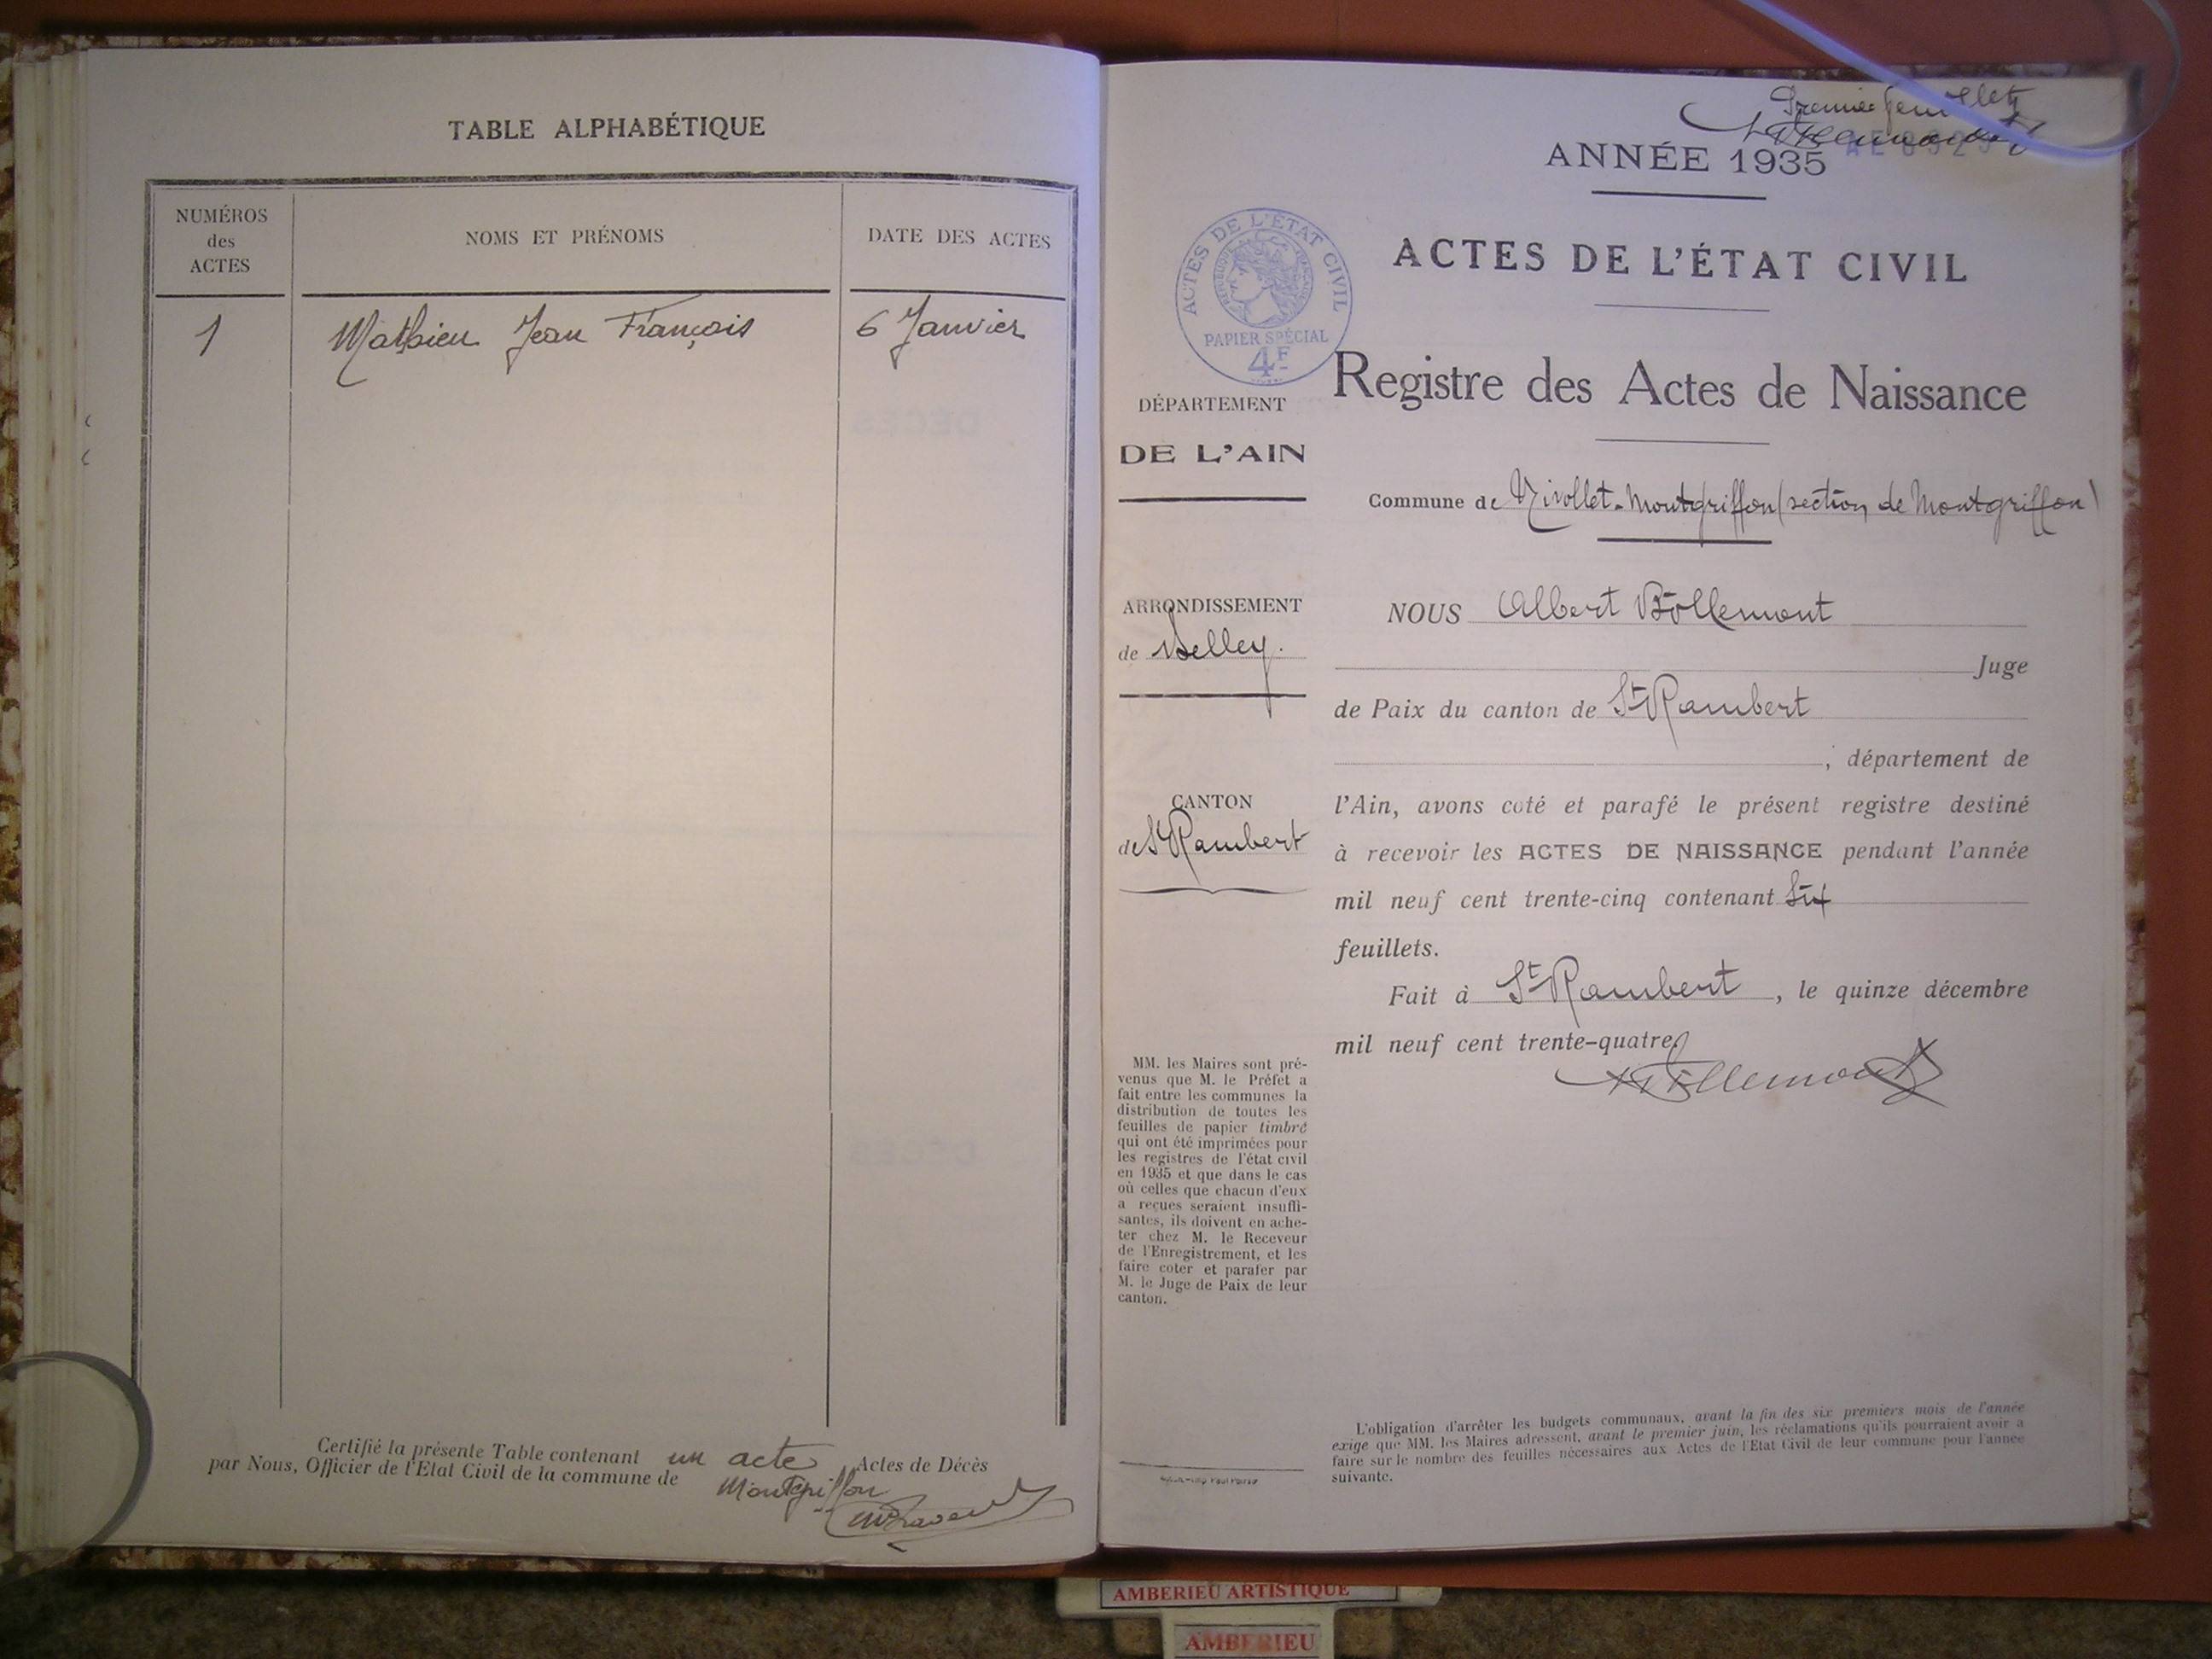 TABLE ALPHABÉTIQUE
NUMÉROS
des
ACTES
NOMS ET PRÉNOMS
DATE DES ACTES
1
Mathieu Jean François
6 Janvier
Certifié la présente Table contenant un acte Actes de Décès
par Nous, Officier de l'Etat Civil de la commune de
Montgriffon
Premier feuillet
ANNÉE 1935
ACTES DE L'ÉTAT CIVIL
ACTES DE L'ÉTAT CIVIL
RÉPUBLIQUE FRANÇAISE
PAPIER SPÉCIAL
4F
Registre des Actes de Naissance
DÉPARTEMENT
DE L'AIN
Commune de Nivollet-Montgriffon (section de Montgriffon)
ARRONDISSEMENT
de Belley.
CANTON
de St Rambert
NOUS Albert Böllemont
Juge
de Paix du canton de St Rambert
, département de
l'Ain, avons coté et parafé le présent registre destiné
à recevoir les ACTES DE NAISSANCE pendant l'année
mil neuf cent trente-cinq contenant Six
feuillets.
Fait à St Rambert, le quinze décembre
mil neuf cent trente-quatre.
MM. les Maires sont pré-
venus que M. le Préfet a
fait entre les communes la
distribution de toutes les
feuilles de papier timbré
qui ont été imprimées pour
les registres de l'état civil
en 1935 et que dans le cas
où celles que chacun d'eux
a reçues seraient insuffi-
santes, ils doivent en ache-
ter chez M. le Receveur
de l'Enregistrement, et les
faire coter et parafer par
M. le Juge de Paix de leur
canton.
L'obligation d'arrêter les budgets communaux, avant la fin des six premiers mois de l'année
exige que MM. les Maires adressent, avant le premier juin, les réclamations qu'ils pourraient avoir à
faire sur le nombre des feuilles nécessaires aux Actes de l'Etat Civil de leur commune pour l'année
suivante.
AMBERIEU ARTISTIQUE
AMBERIEU